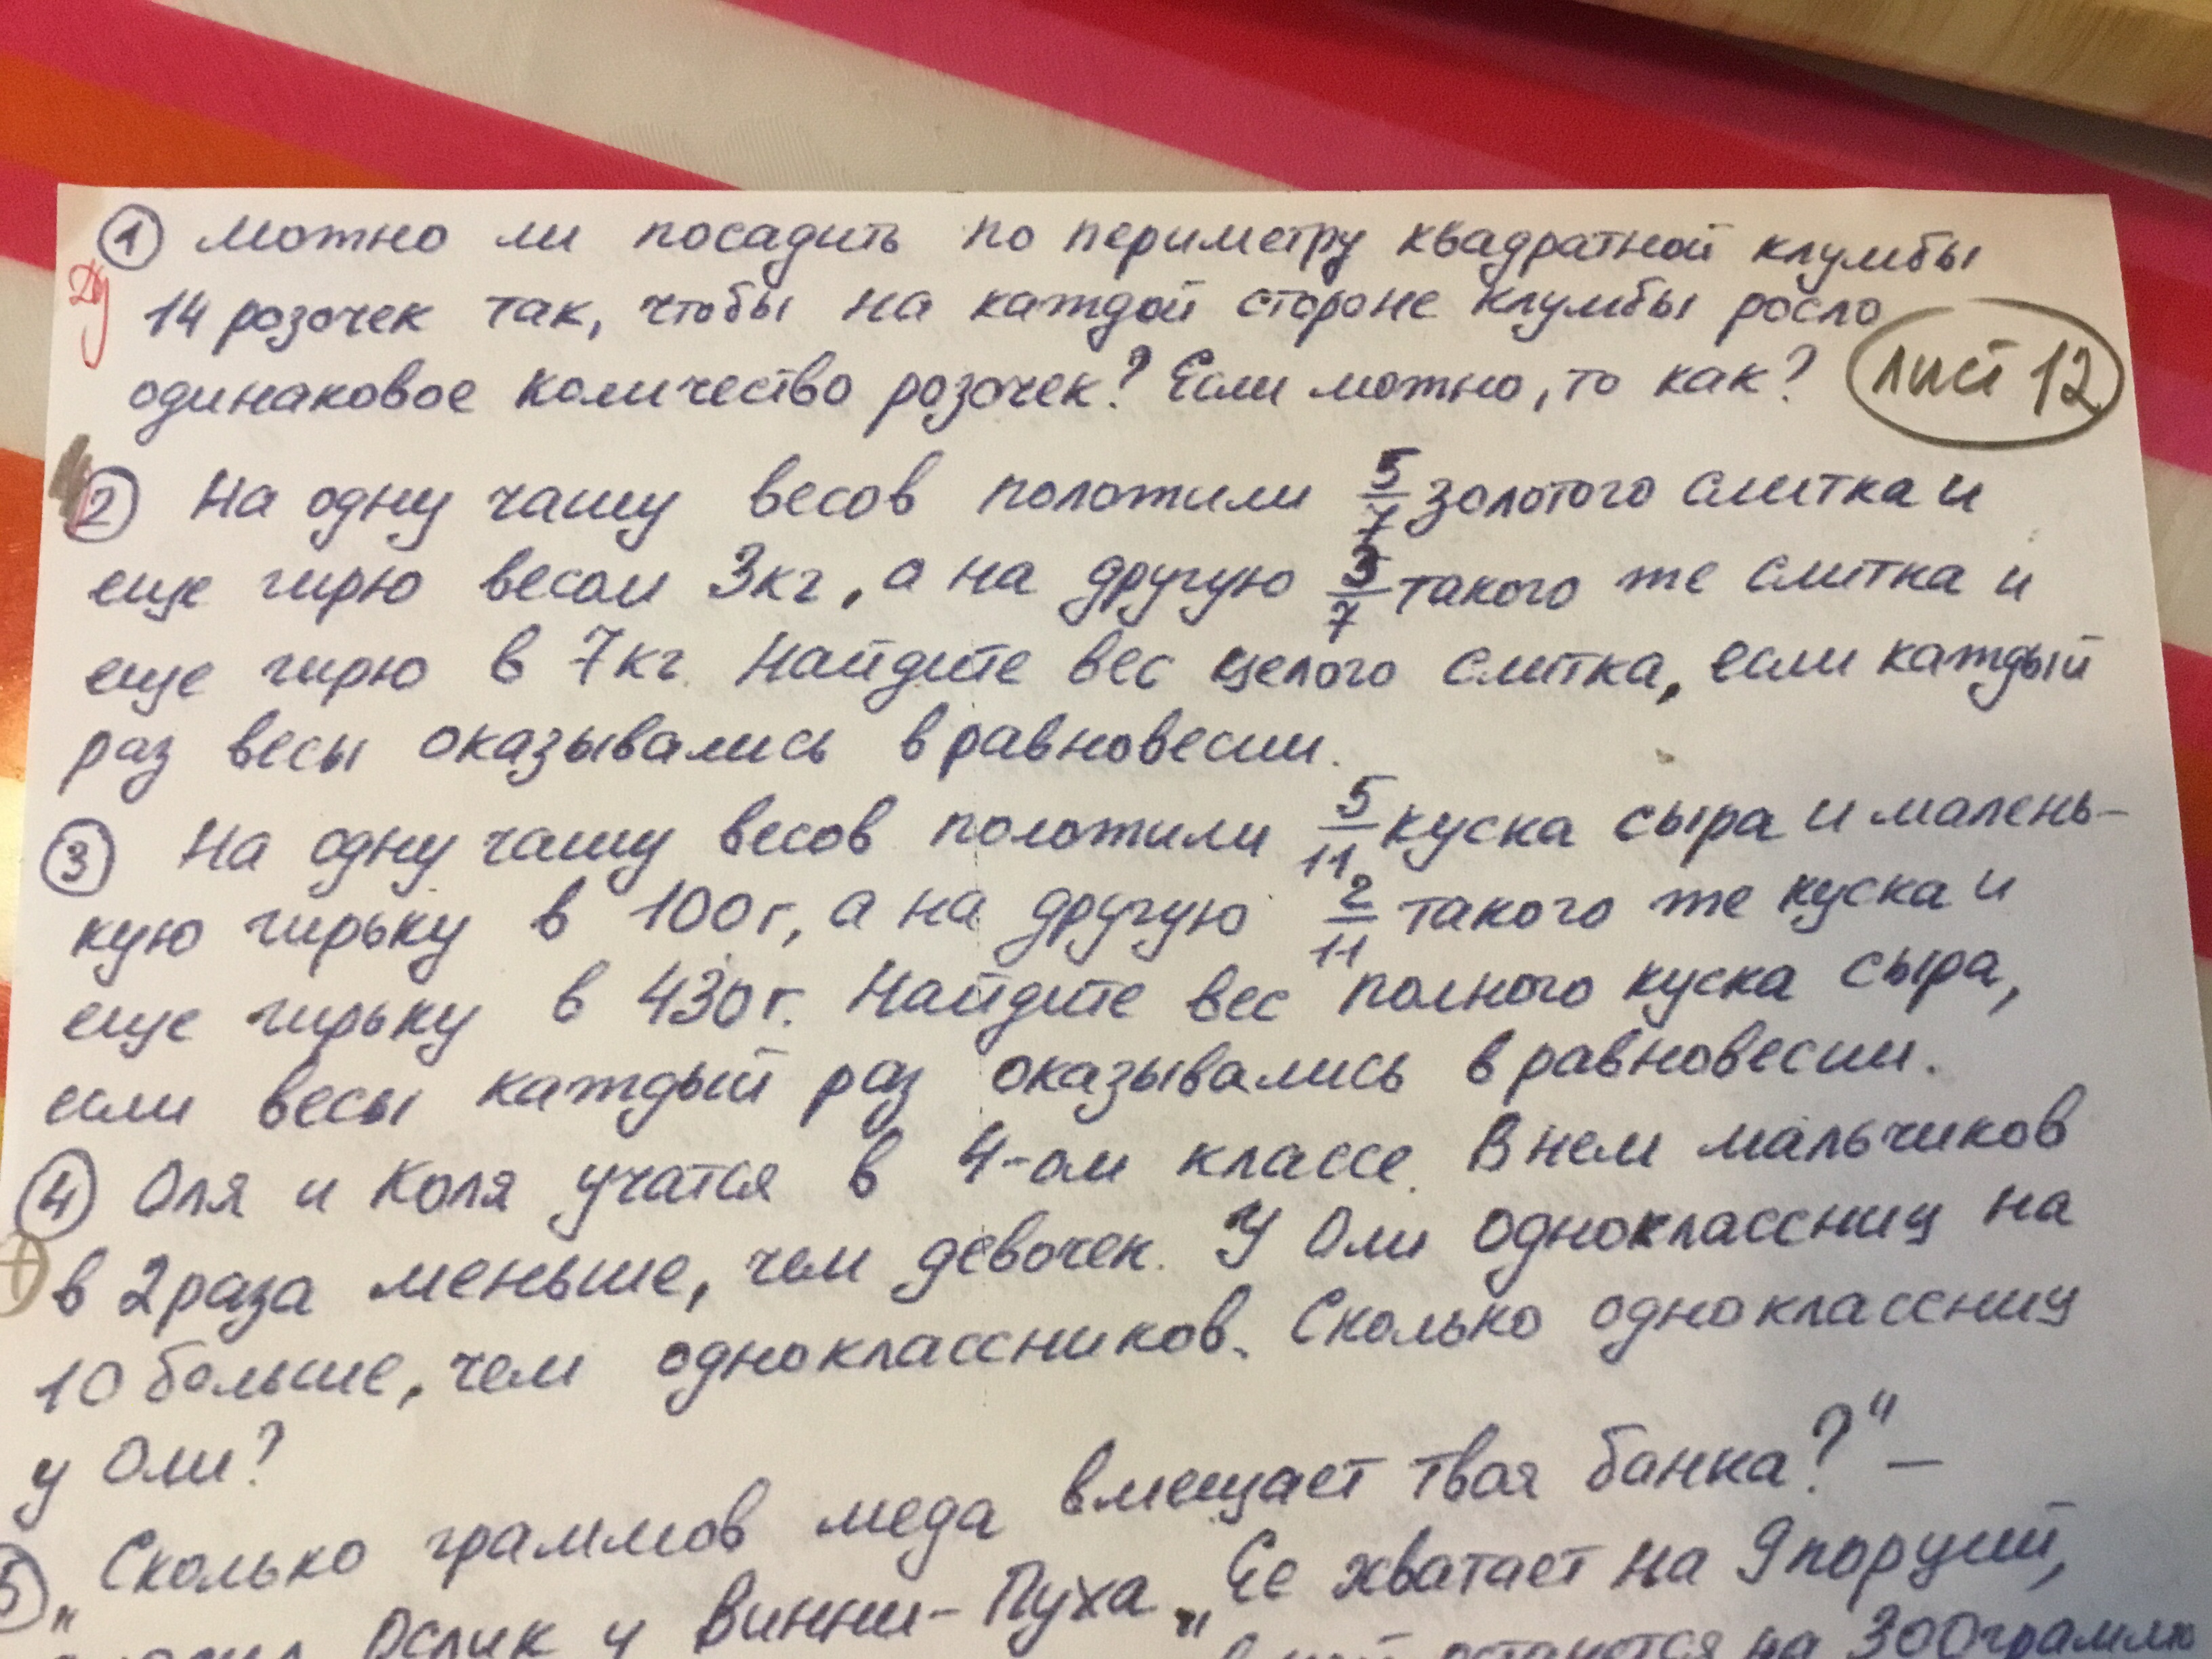 1 Можно ли посадить по периметру квадратной клумбы
14 розочек так, чтобы на каждой стороне клумбы росло
одинаковое количество розочек? Если можно, то как?
лист 12
2 На одну чашу весов положили 5/7 золотого слитка и
еще гирю весом 3кг, а на другую 3/7 такого же слитка и
еще гирю в 7кг. Найдите вес целого слитка, если каждый
раз весы оказывались в равновесии.
3 На одну чашу весов положили 5/11 куска сыра и малень-
кую гирьку в 100г, а на другую 2/11 такого же куска и
еще гирьку в 430г. Найдите вес полного куска сыра,
если весы каждый раз оказывались в равновесии.
4 Оля и Коля учатся в 4-ом классе. В нем мальчиков
в 2 раза меньше, чем девочек. У Оли одноклассниц на
10 больше, чем одноклассников. Сколько одноклассниц
у Оли?
5 „Сколько граммов меда вмещает твоя банка?" –
Ослик у Винни-Пуха. „Ее хватает на 9 порций,
на 300 граммов